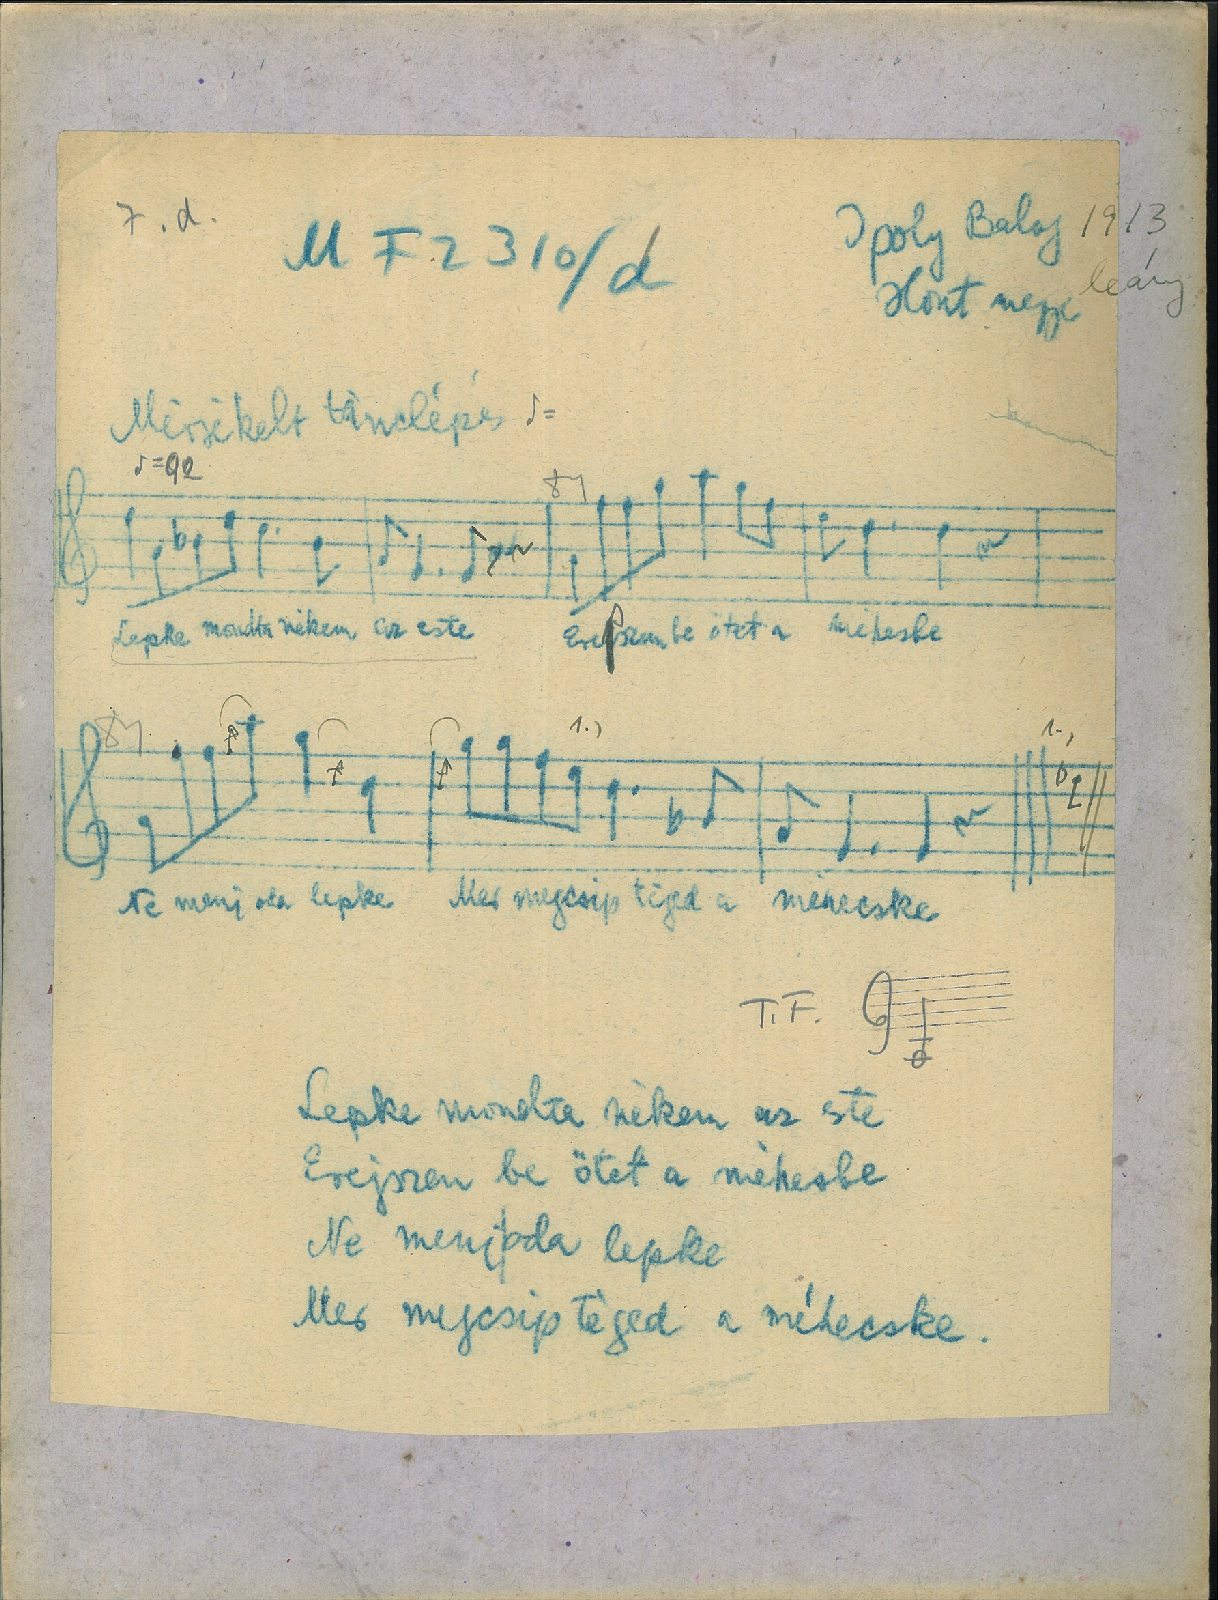 7. d.
M F 2310/d
Ipoly Balog 1913
Hont megye leány
Mérsékelt tánclépés ♪=
♪=92
Lepke mondta nékem az este
Erejszen be ötet a méhesbe
1.,
1.,
Ne menj oda lepke Mer megcsip téged a méhecske
T. F.
Lepke mondta nékem az este
Erejszen be ötet a méhesbe
Ne menj oda lepke
Mer megcsip téged a méhecske.